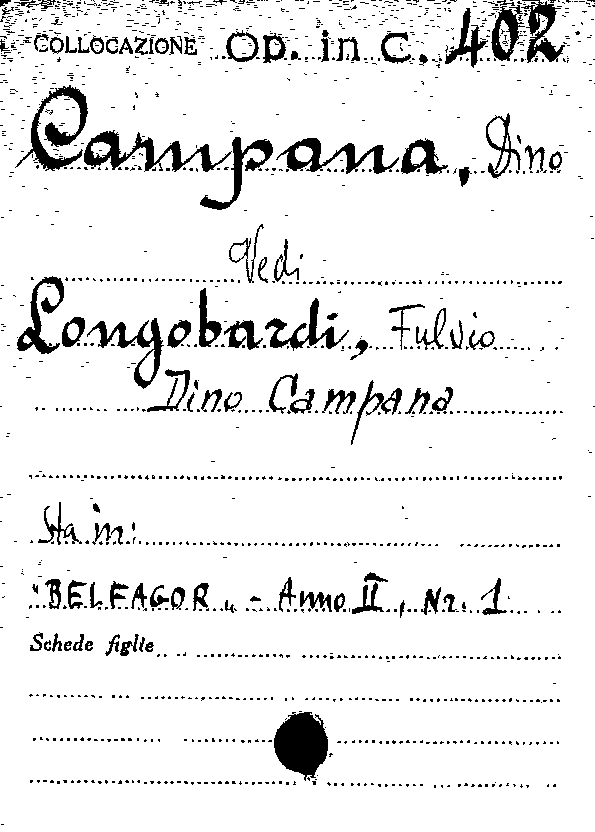 COLLOCAZIONE Op. in C. 402
Campana, Dino
Vedi
Longobardi, Fulvio
Dino Campana
Sta in:
"BELFAGOR„ - Anno II, Nr. 1
Schede figlie